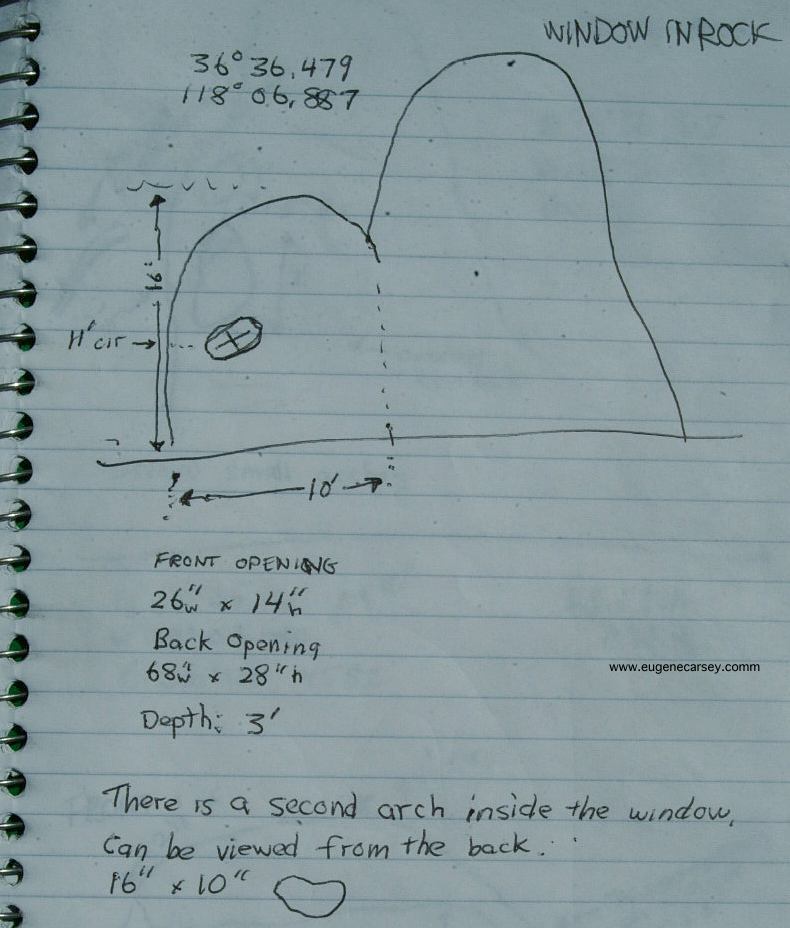 WINDOW IN ROCK
36° 36.479
118° 06,887
16'
H' cir →
10'
FRONT OPENING
26"w x 14"h
Back Opening
68"w x 28"h
Depth: 3'
www.eugenecarsey.comm
There is a second arch inside the window,
Can be viewed from the back.
16" x 10"